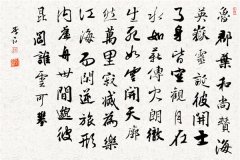 魯郡葉和尚贊海
英嶽靈誕彼開士
了身皆空觀月在
水如薪傳火朗徹
生死如雲開天廓
然萬里寂滅為樂
江海而閑逆旅形
内虛舟世間邈彼
昆閬誰雲可攀